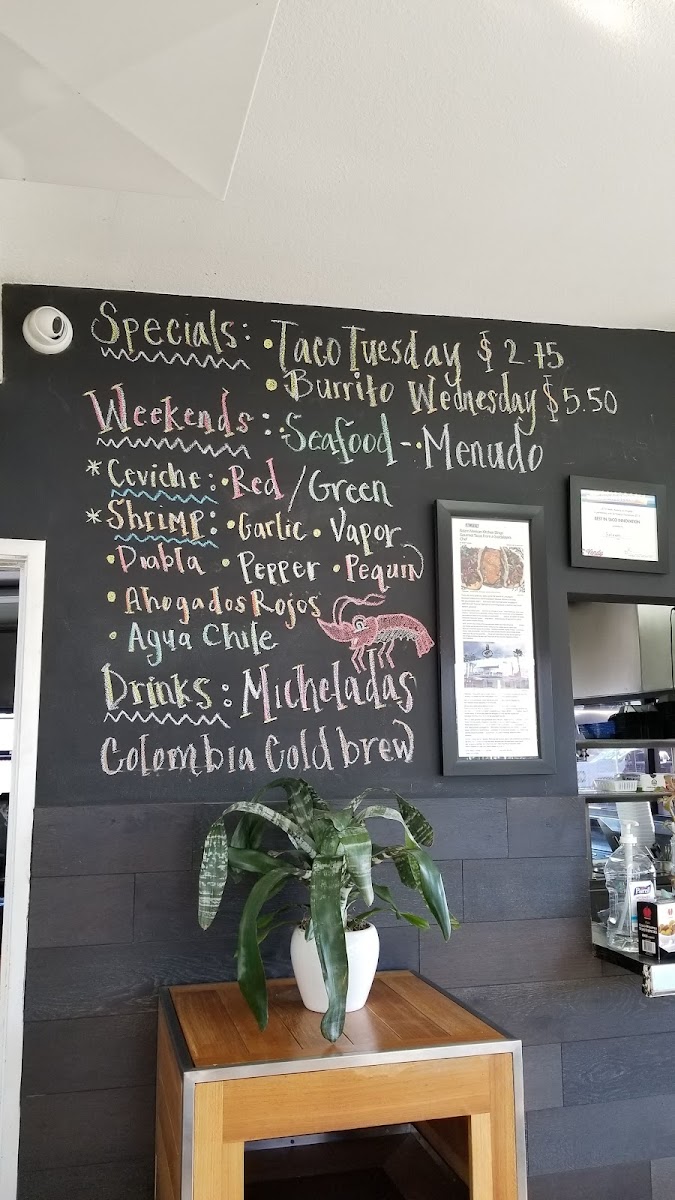 Specials: • Taco Tuesday $ 2.75
• Burrito Wednesday $5.50
Weekends: • Seafood - • Menudo
* Ceviche: • Red / Green
* Shrimp: • Garlic • Vapor
• Diabla • Pepper • Pequin
• Ahogados Rojos
• Agua Chile
Drinks: Micheladas
Colombia Cold brew
Purell